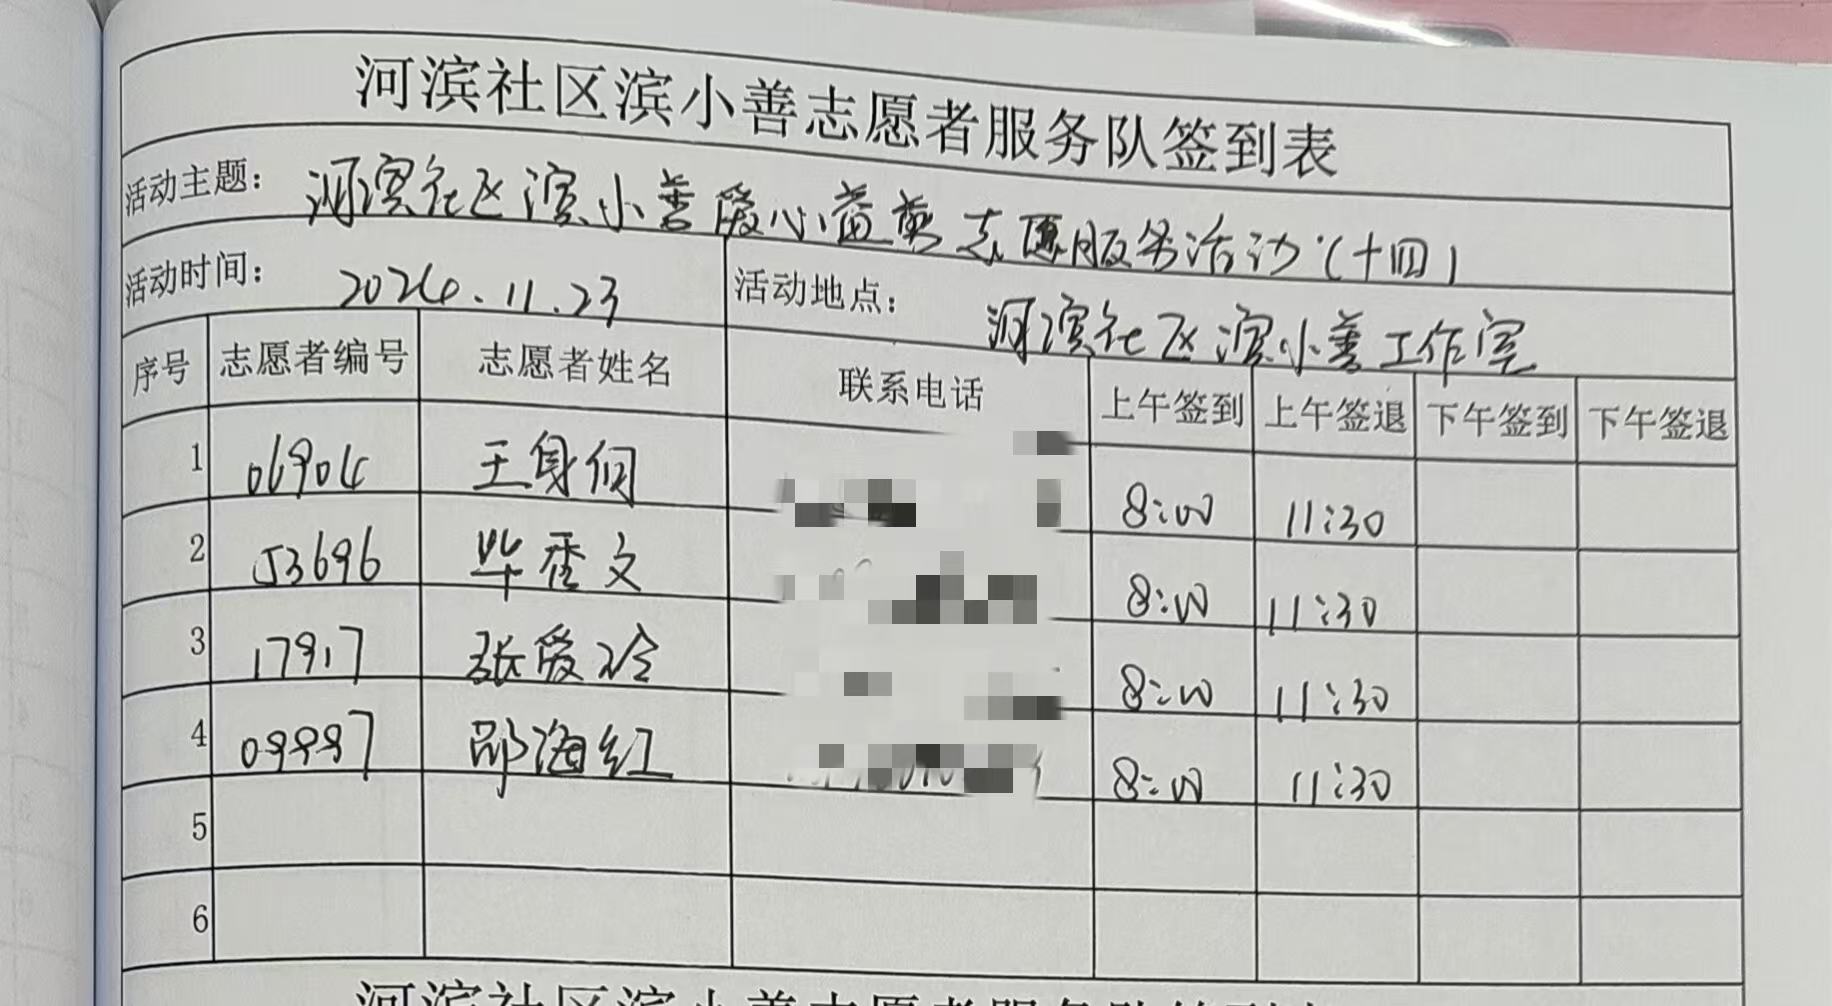 河滨社区滨小善志愿者服务队签到表
活动主题： 河滨社区滨小善爱心益剪志愿服务活动（十四）
活动时间： 2024.11.23 活动地点： 河滨社区滨小善工作室
序号 志愿者编号 志愿者姓名 联系电话 上午签到 上午签退 下午签到 下午签退
1 06904 王身伺 8:00 11:30
2 53696 毕秀文 8:00 11:30
3 17917 张爱玲 8:00 11:30
4 09997 邵海红 8:00 11:30
5
6
河滨社区滨小善志愿者服务队签到表